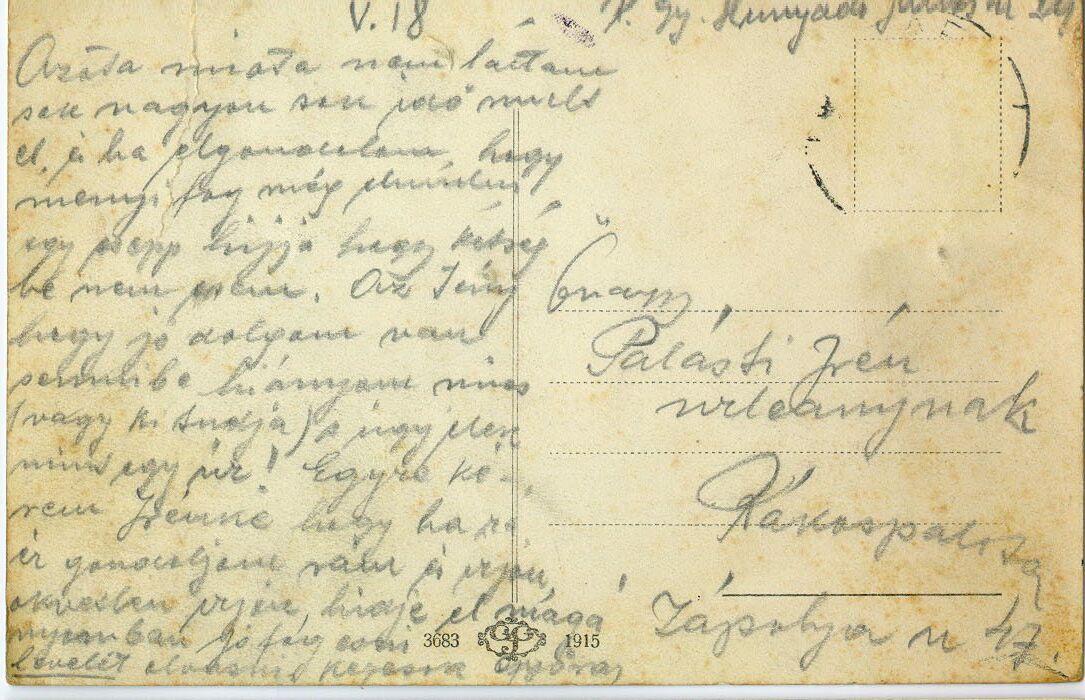 V. 18
Gy. Hunyadi János u
Azóta mióta nem láttam
sok nagyon sok idő mult
el, és ha elgondolom, hogy
menyi fog még elmúlni
egy csepp hijja hogy kétség
be nem esem. Az Igaz
hogy jó dolgom van
semmibe hiányom nincs
(vagy ki tudja) s úgy élek
mint egy úr! Egyre ké-
rem Irénke hogy ha rá
ér gondoljon rám és írjon,
okvetlen írjon, hidje el maga
jó fog esni
levelét olvasni
Őnagys.
Palásti Irén
urleánynak
Rákospalota
Zápolya u 47.
3683 1915